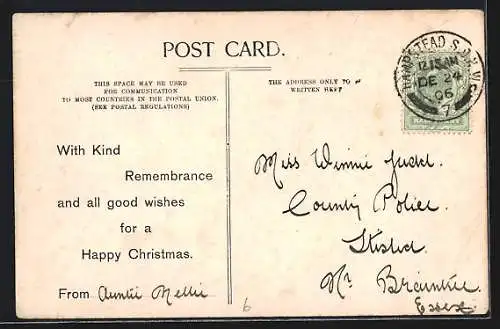 POST CARD.
THIS SPACE MAY BE USED
FOR COMMUNICATION
TO MOST COUNTRIES IN THE POSTAL UNION.
(SEE POSTAL REGULATIONS)
THE ADDRESS ONLY TO
WRITTEN HERE
HAMPSTEAD S.O. N.W.
12.15 AM
DE 24
06
7
With Kind
Remembrance
and all good wishes
for a
Happy Christmas.
From Auntie Nellie
Miss Winnie Judd.
County Police.
Stisted
Nr Braintree
Essex
6